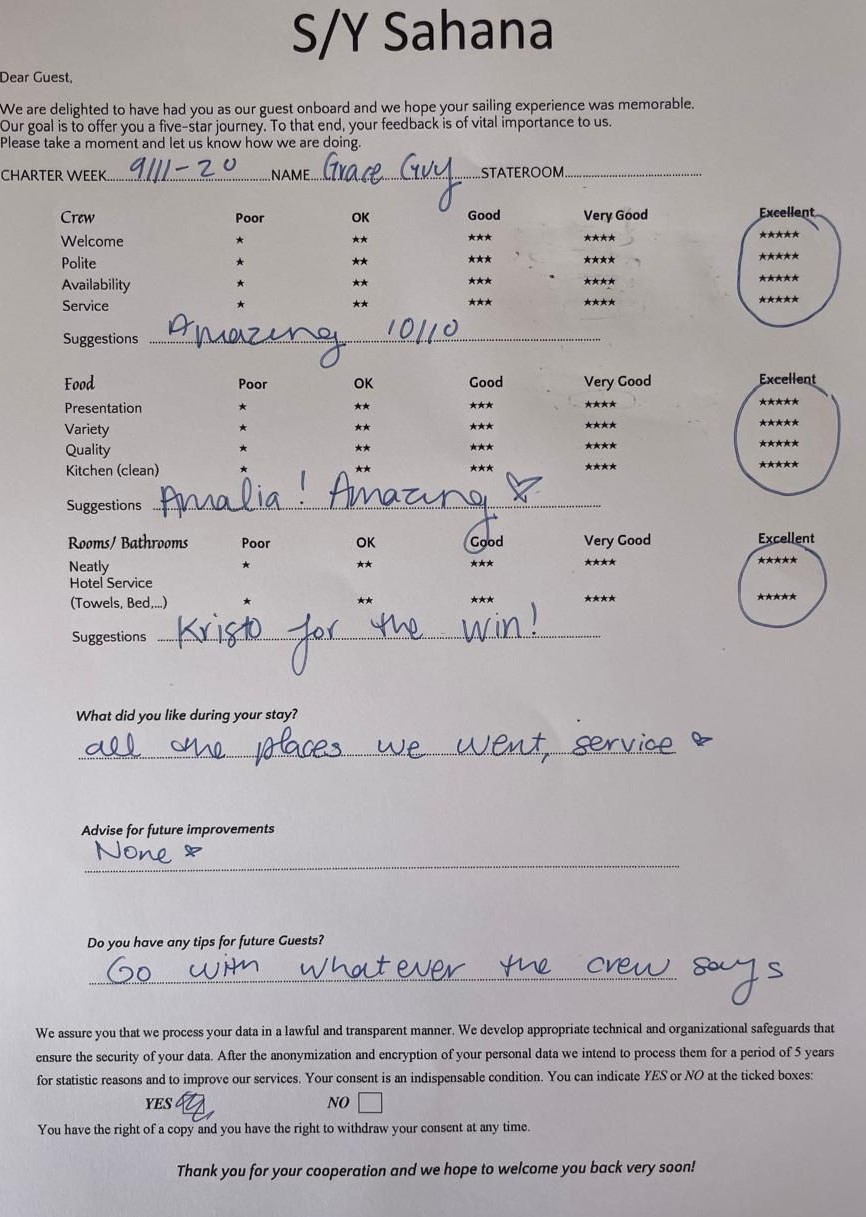 S/Y Sahana
Dear Guest,
We are delighted to have had you as our guest onboard and we hope your sailing experience was memorable.
Our goal is to offer you a five-star journey. To that end, your feedback is of vital importance to us.
Please take a moment and let us know how we are doing.
CHARTER WEEK.....9/11-20.....NAME...Grace Guy......STATEROOM..........
Crew Poor OK Good Very Good Excellent
Welcome ★ ★★ ★★★ ★★★★ ★★★★★
Polite ★ ★★ ★★★ ★★★★ ★★★★★
Availability ★ ★★ ★★★ ★★★★ ★★★★★
Service ★ ★★ ★★★ ★★★★ ★★★★★
Suggestions Amazing 10/10
Food Poor OK Good Very Good Excellent
Presentation ★ ★★ ★★★ ★★★★ ★★★★★
Variety ★ ★★ ★★★ ★★★★ ★★★★★
Quality ★ ★★ ★★★ ★★★★ ★★★★★
Kitchen (clean) ★ ★★ ★★★ ★★★★ ★★★★★
Suggestions Amalia! Amazing ♡
Rooms/ Bathrooms Poor OK Good Very Good Excellent
Neatly ★ ★★ ★★★ ★★★★ ★★★★★
Hotel Service
(Towels, Bed,...) ★ ★★ ★★★ ★★★★ ★★★★★
Suggestions Kristo for the win!
What did you like during your stay?
all the places we went, service ♡
Advise for future improvements
None ♡
Do you have any tips for future Guests?
Go with whatever the crew says
We assure you that we process your data in a lawful and transparent manner. We develop appropriate technical and organizational safeguards that
ensure the security of your data. After the anonymization and encryption of your personal data we intend to process them for a period of 5 years
for statistic reasons and to improve our services. Your consent is an indispensable condition. You can indicate YES or NO at the ticked boxes:
YES NO
You have the right of a copy and you have the right to withdraw your consent at any time.
Thank you for your cooperation and we hope to welcome you back very soon!